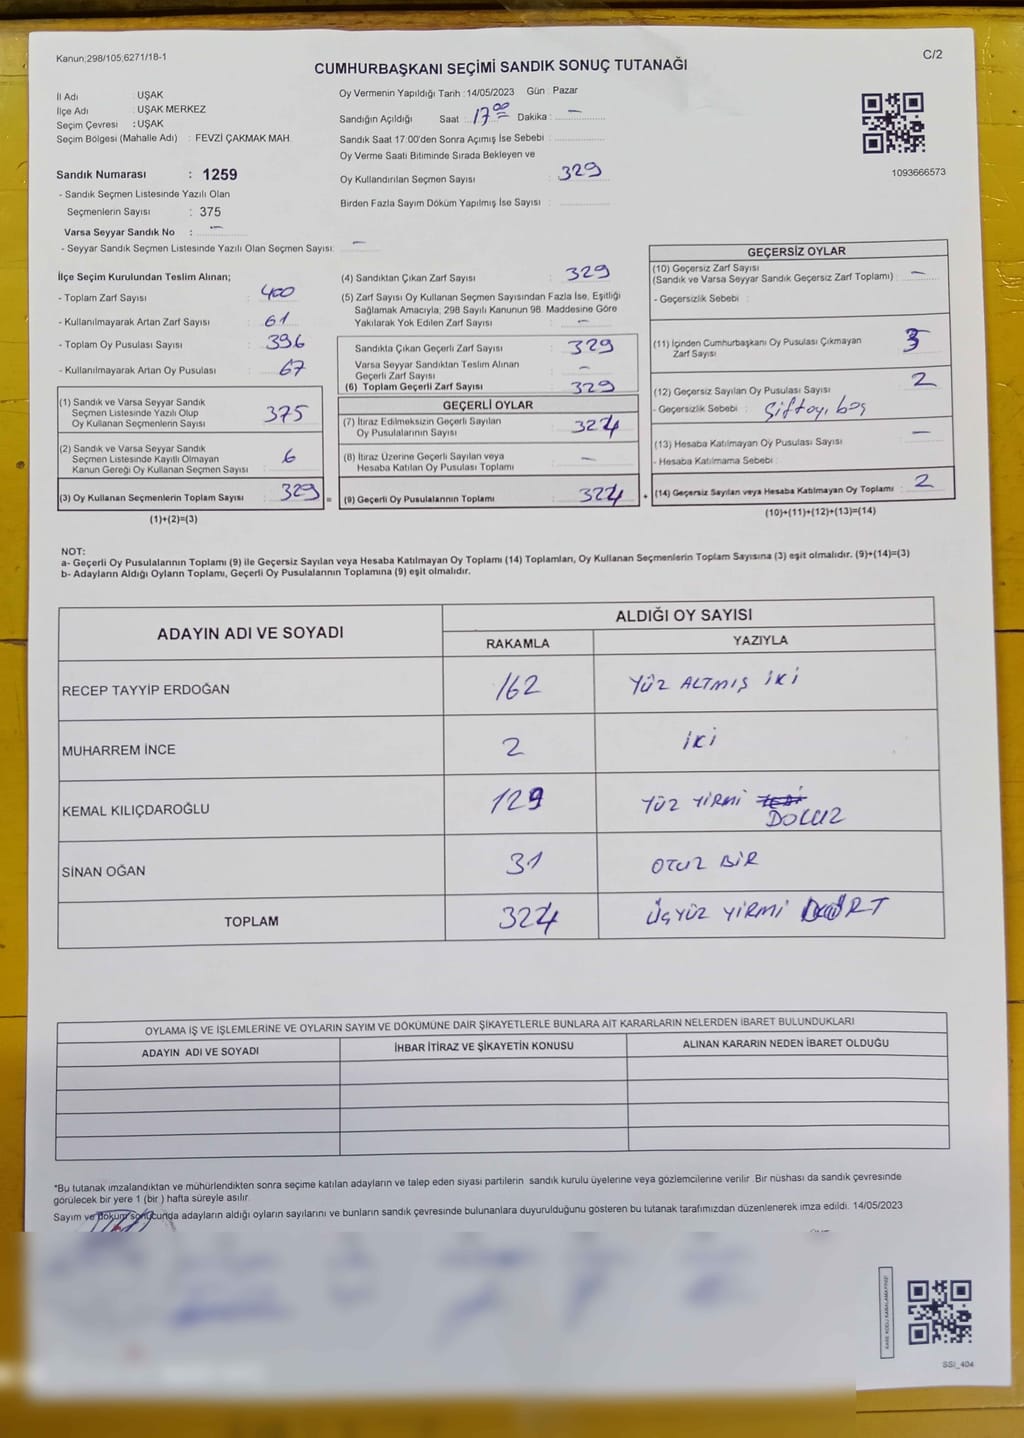 Kanun;298/105;6271/18-1
C/2
CUMHURBAŞKANI SEÇİMİ SANDIK SONUÇ TUTANAĞI
İl Adı : UŞAK
İlçe Adı : UŞAK MERKEZ
Seçim Çevresi : UŞAK
Seçim Bölgesi (Mahalle Adı) : FEVZİ ÇAKMAK MAH.
Oy Vermenin Yapıldığı Tarih :14/05/2023 Gün : Pazar
Sandığın Açıldığı Saat : 17 00 Dakika : —
Sandık Saat 17:00'den Sonra Açımış İse Sebebi :
Oy Verme Saati Bitiminde Sırada Bekleyen ve
Oy Kullandırılan Seçmen Sayısı : 329
Birden Fazla Sayım Döküm Yapılmış İse Sayısı :
1093666573
Sandık Numarası : 1259
- Sandık Seçmen Listesinde Yazılı Olan
Seçmenlerin Sayısı : 375
Varsa Seyyar Sandık No : —
- Seyyar Sandık Seçmen Listesinde Yazılı Olan Seçmen Sayısı: —
İlçe Seçim Kurulundan Teslim Alınan;
- Toplam Zarf Sayısı : 400
- Kullanılmayarak Artan Zarf Sayısı : 61
- Toplam Oy Pusulası Sayısı : 396
- Kullanılmayarak Artan Oy Pusulası : 67
(1) Sandık ve Varsa Seyyar Sandık
Seçmen Listesinde Yazılı Olup
Oy Kullanan Seçmenlerin Sayısı : 375
(2) Sandık ve Varsa Seyyar Sandık
Seçmen Listesinde Kayıtlı Olmayan
Kanun Gereği Oy Kullanan Seçmen Sayısı : 6
(3) Oy Kullanan Seçmenlerin Toplam Sayısı : 329 =
(1)+(2)=(3)
(4) Sandıktan Çıkan Zarf Sayısı : 329
(5) Zarf Sayısı Oy Kullanan Seçmen Sayısından Fazla İse, Eşitliği
Sağlamak Amacıyla, 298 Sayılı Kanunun 98. Maddesine Göre
Yakılarak Yok Edilen Zarf Sayısı : —
Sandıkta Çıkan Geçerli Zarf Sayısı : 329
Varsa Seyyar Sandıktan Teslim Alınan
Geçerli Zarf Sayısı : —
(6) Toplam Geçerli Zarf Sayısı : 329
GEÇERLİ OYLAR
(7) İtiraz Edilmeksizin Geçerli Sayılan
Oy Pusulalarının Sayısı : 324
(8) İtiraz Üzerine Geçerli Sayılan veya
Hesaba Katılan Oy Pusulası Toplamı : —
(9) Geçerli Oy Pusulalarının Toplamı : 324 +
GEÇERSİZ OYLAR
(10) Geçersiz Zarf Sayısı
(Sandık ve Varsa Seyyar Sandık Geçersiz Zarf Toplamı) : —
- Geçersizlik Sebebi :
(11) İçinden Cumhurbaşkanı Oy Pusulası Çıkmayan
Zarf Sayısı : 3
(12) Geçersiz Sayılan Oy Pusulası Sayısı : 2
- Geçersizlik Sebebi : Çift oy, boş
(13) Hesaba Katılmayan Oy Pusulası Sayısı : —
- Hesaba Katılmama Sebebi :
(14) Geçersiz Sayılan veya Hesaba Katılmayan Oy Toplamı : 2
(10)+(11)+(12)+(13)=(14)
NOT:
a- Geçerli Oy Pusulalarının Toplamı (9) ile Geçersiz Sayılan veya Hesaba Katılmayan Oy Toplamı (14) Toplamları, Oy Kullanan Seçmenlerin Toplam Sayısına (3) eşit olmalıdır. (9)+(14)=(3)
b- Adayların Aldığı Oyların Toplamı, Geçerli Oy Pusulalarının Toplamına (9) eşit olmalıdır.
ADAYIN ADI VE SOYADI
ALDIĞI OY SAYISI
RAKAMLA YAZIYLA
RECEP TAYYİP ERDOĞAN 162 YÜZ ALTMIŞ İKİ
MUHARREM İNCE 2 İKİ
KEMAL KILIÇDAROĞLU 129 YÜZ YİRMİ DOKUZ
SİNAN OĞAN 31 OTUZ BİR
TOPLAM 324 ÜÇYÜZ YİRMİ DÖRT
OYLAMA İŞ VE İŞLEMLERİNE VE OYLARIN SAYIM VE DÖKÜMÜNE DAİR ŞİKAYETLERLE BUNLARA AİT KARARLARIN NELERDEN İBARET BULUNDUKLARI
ADAYIN ADI VE SOYADI İHBAR İTİRAZ VE ŞİKAYETİN KONUSU ALINAN KARARIN NEDEN İBARET OLDUĞU
*Bu tutanak imzalandıktan ve mühürlendikten sonra seçime katılan adayların ve talep eden siyasi partilerin sandık kurulu üyelerine veya gözlemcilerine verilir. Bir nüshası da sandık çevresinde
görülecek bir yere 1 (bir) hafta süreyle asılır.
Sayım ve döküm sonucunda adayların aldığı oyların sayılarını ve bunların sandık çevresinde bulunanlara duyurulduğunu gösteren bu tutanak tarafımızdan düzenlenerek imza edildi. 14/05/2023
SSI_404